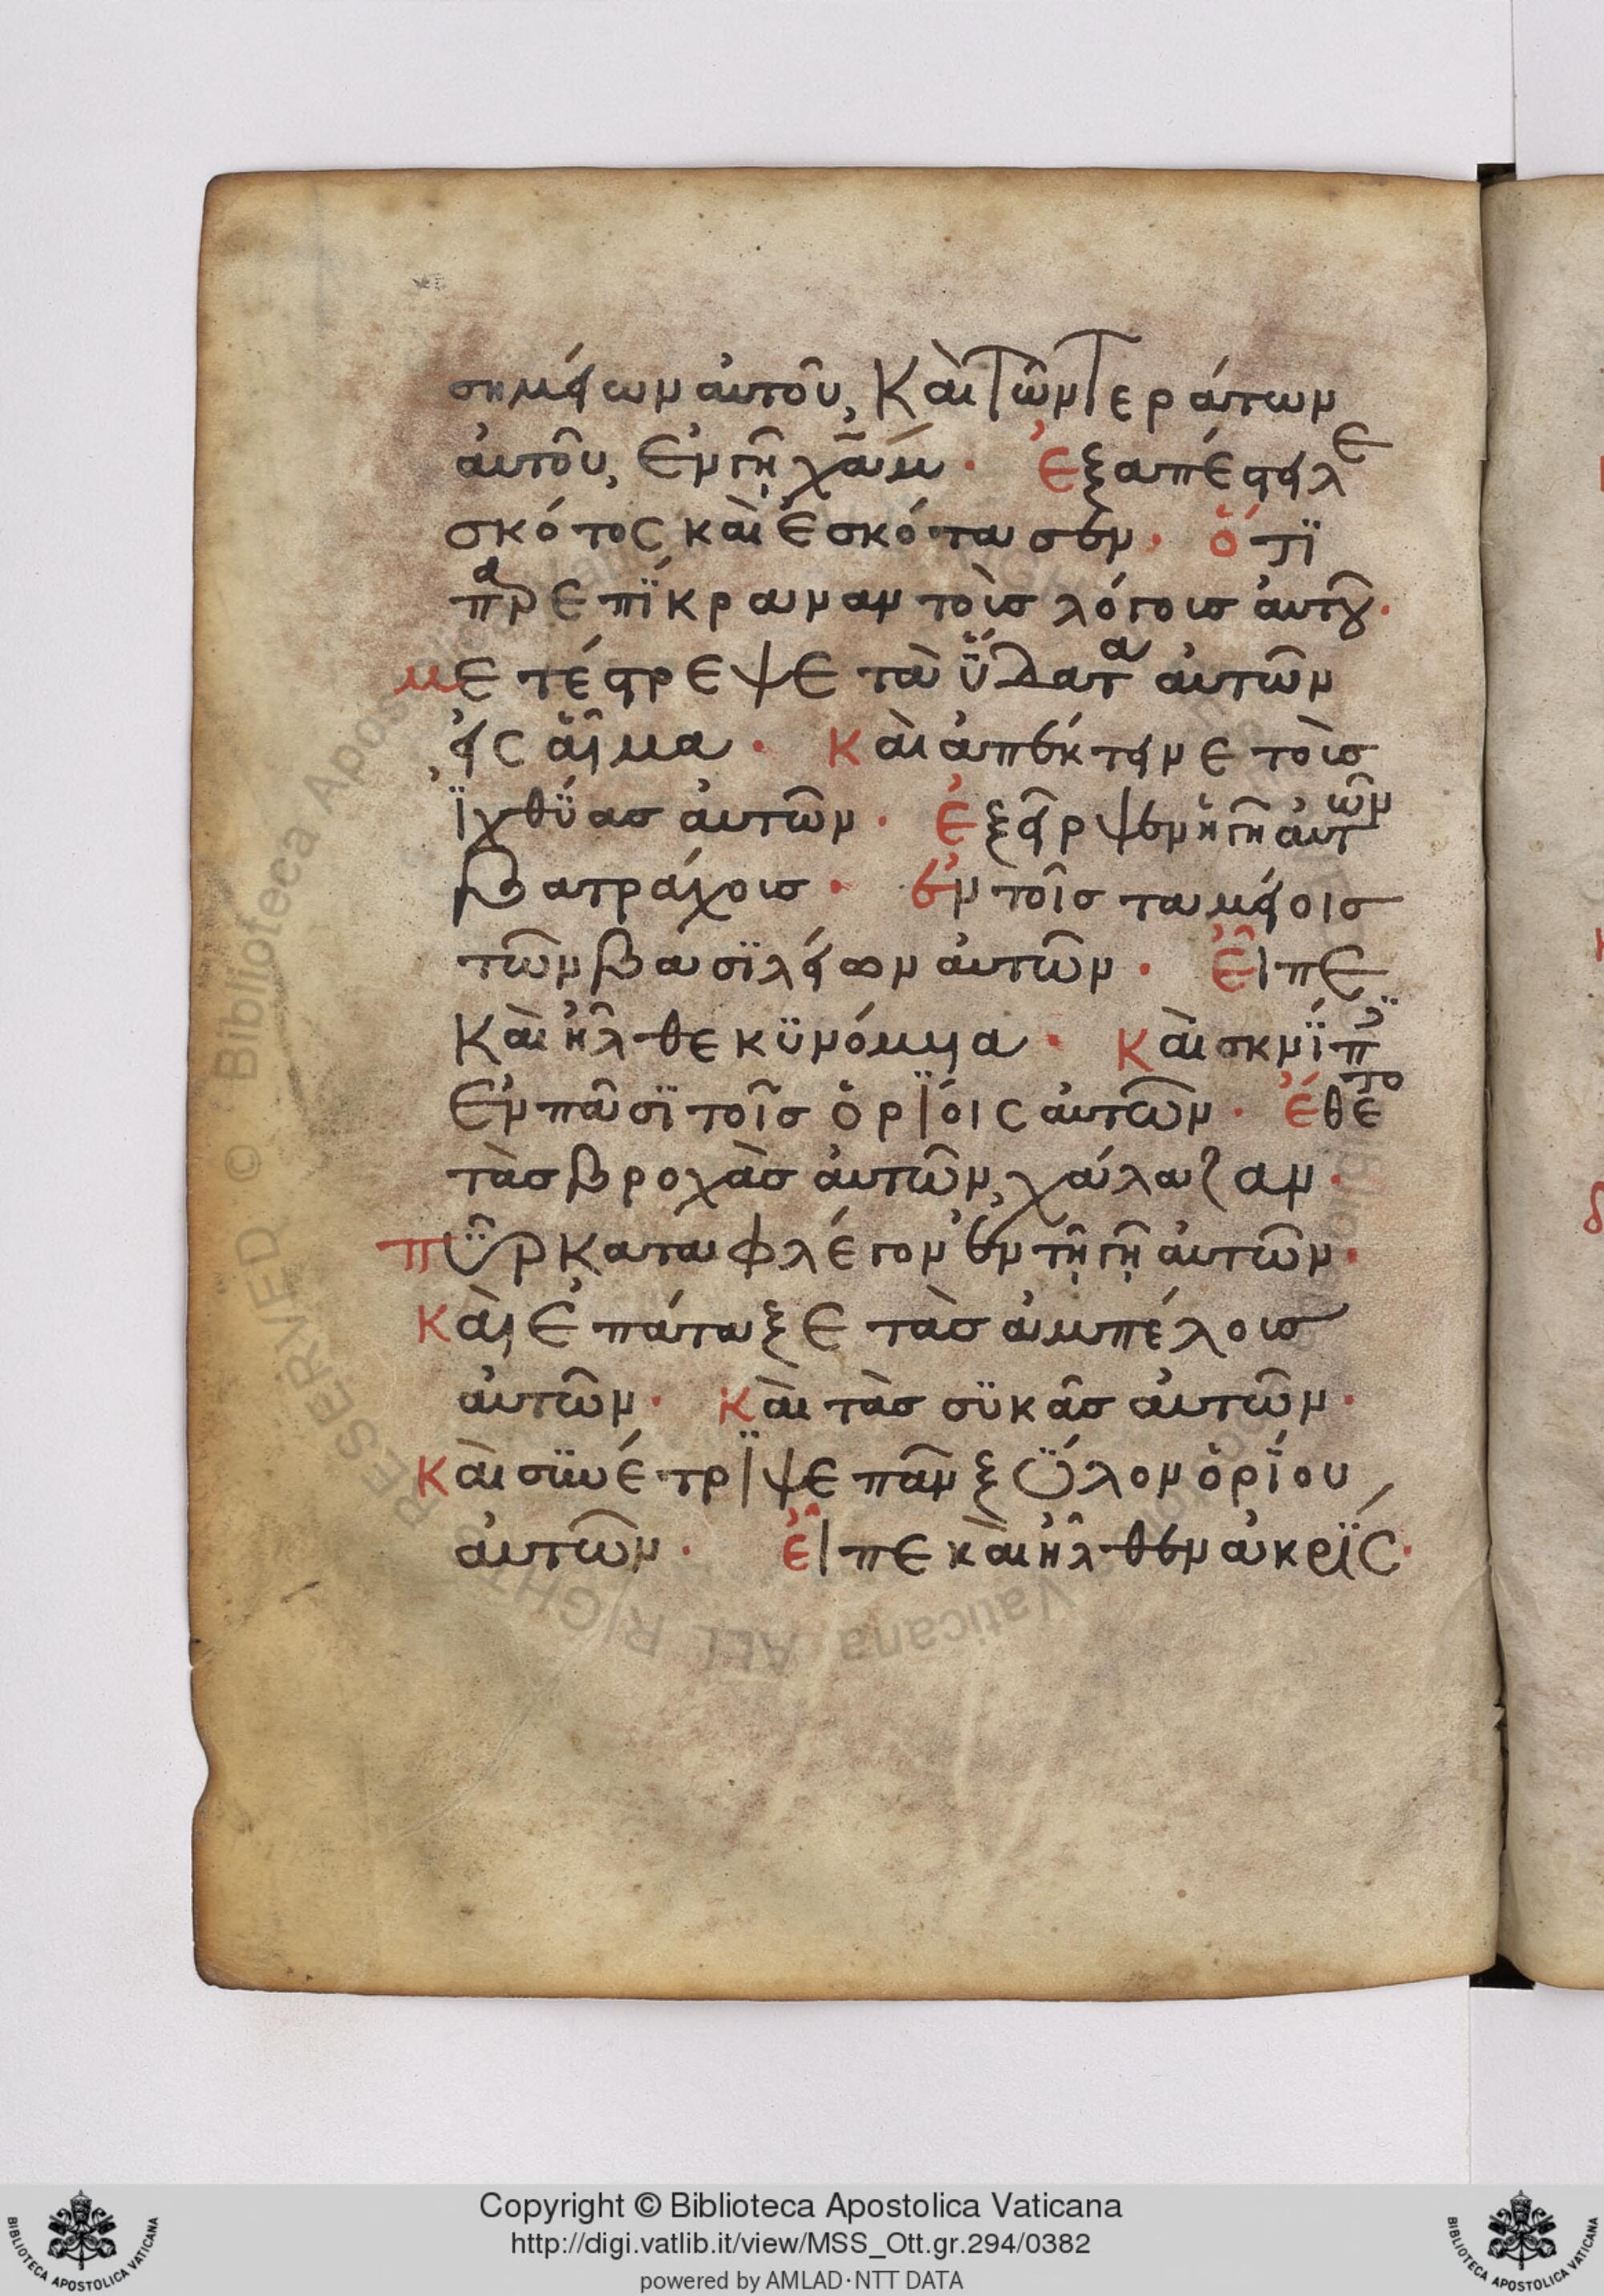 σημείων αὐτοῦ, Καὶ τῶν τεράτων
αὐτοῦ, ἐν γῇ χαμ· ἐξαπέστειλε
σκότος καὶ ἐσκότασεν· ὅτϊ
παρεπϊκραναν τοὺσ λόγουσ αὐτοῦ·
μετέστρεψε τὰ ὕδατα αὐτῶν
εἰς αἷμα· καὶ ἀπέκτεινε τοὺσ
ἰχθύασ αὐτῶν· ἐξεῖρψεν ἡ γῆ αὐτῶν
βατράχουσ· ἐν τοῖσ ταμείοισ
τῶν βασϊλείων αὐτῶν· εἶπε
Καὶ ἦλθε κϋνόμυια· καὶ σκνῖπϊ
ἐν πᾶσϊ τοῖσ ὁρϊόις αὐτῶν· ἔθετο
τὰσ βροχὰσ αὐτῶν, χάλαζαν·
πῦρ καταφλέγον ἐν τῇ γῇ αὐτῶν·
Καὶ ἐπάταξε τὰσ ἀμπέλουσ
αὐτῶν· καὶ τὰσ σϋκᾶσ αὐτῶν·
Καὶ σϋνέτρϊψε πᾶν ξύλον ὁρίου
αὐτῶν· εἶπε καὶ ἦλθεν ἀκρίς·
Copyright © Biblioteca Apostolica Vaticana
http://digi.vatlib.it/view/MSS_Ott.gr.294/0382
powered by AMLAD·NTT DATA